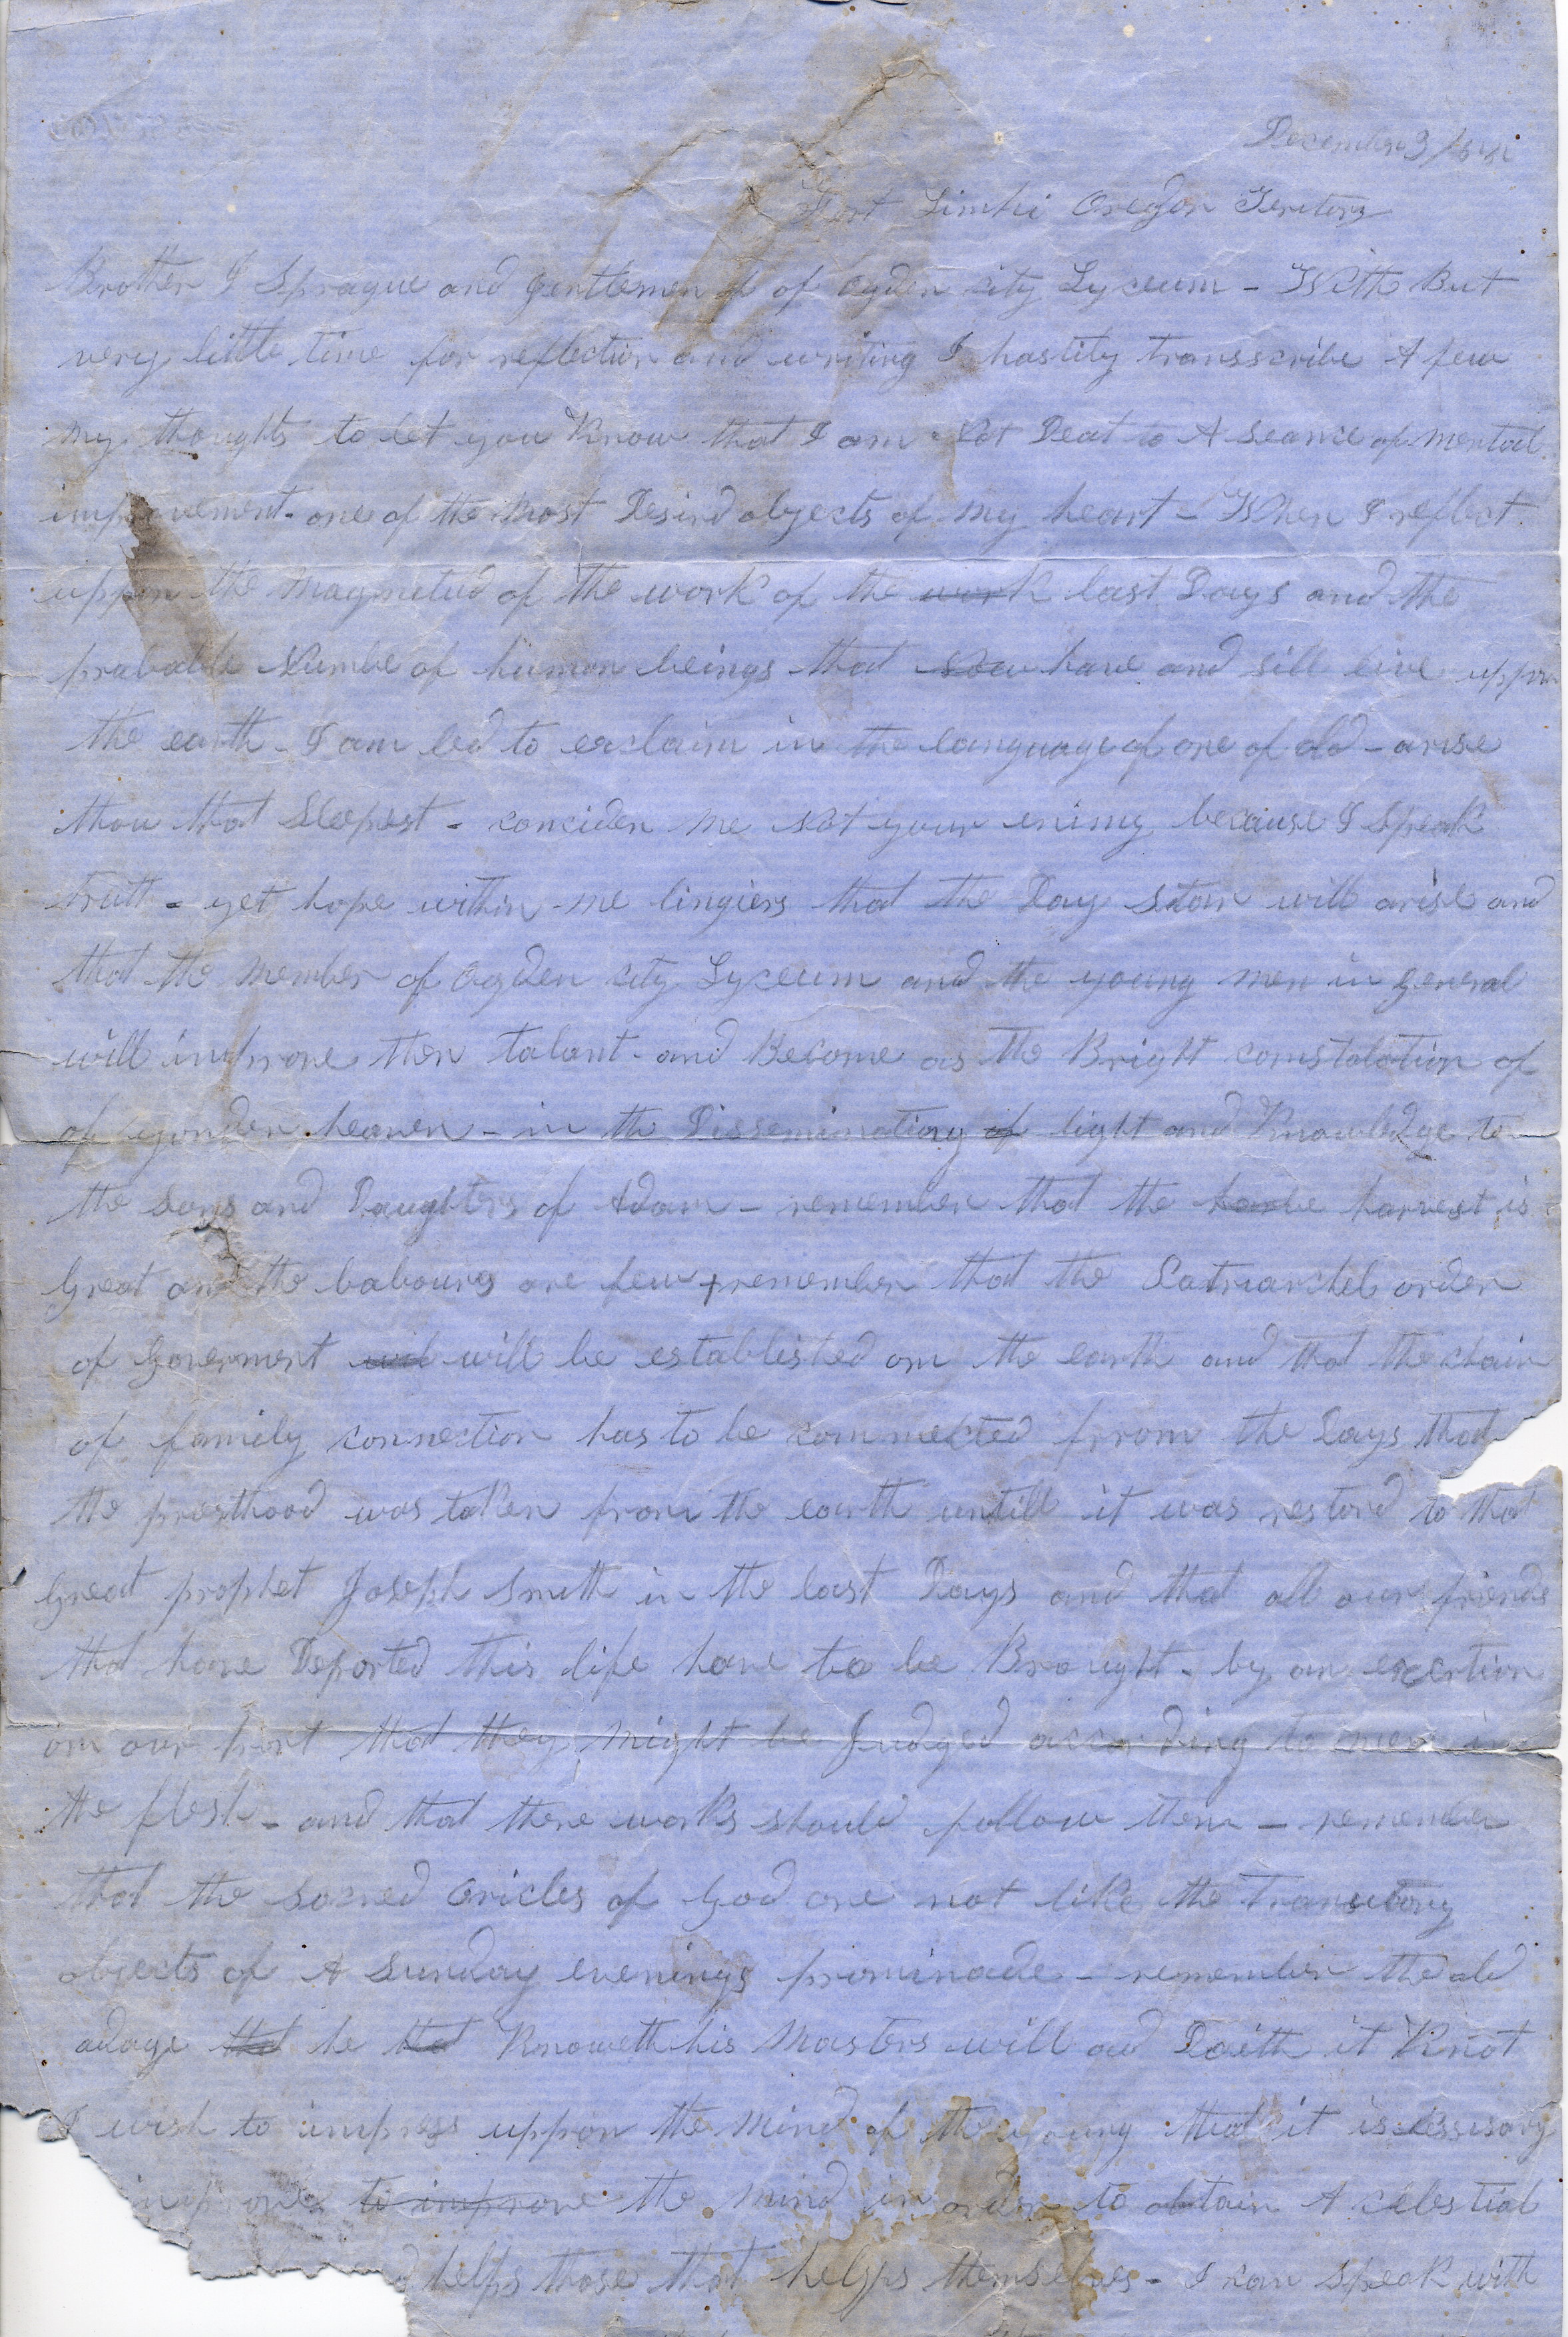 December 3/
Fort Limhi Oregon Teritory
Brother I Sprague and gentlemen of of Ogden city Lyceum - With But
very little time for reflection and writing I hastity transscribe A few
my thoughts to let you Know that I am Not Deat to A Seance of mental
improvement - one of the Most Desird objects of my heart - When I reflect
uppon the Magnetud of the work of the work last Days and the
probable Numbe of human beings that now have and sill live uppon
the earth - I am led to exclaim in the language of one of old - arise
thou that Sleepest - conciden me Not your enimy because I Speak
truth - yet hope within me lingiers that the Day Star will arise and
that the Member of Ogden city Lyceum and the young men in general
will improve then talant - and Become as the Bright comstalation of
of yonden heaven - in the Disseminationg of light and Knowledge to
the Sons and Daughters of Adam - remember that the harve harvest is
Great and the labourys are few + remember that the Patriarchel order
of Goverment wil will be establisted om the earth and that the chain
of family connection has to be commected frrom the Days that
the priesthood was taken from the earth untill it was restord to that
Great prophet Joseph Smith in the last Days and that all our friends
that have Deported this life have to be Brought - by an excertion
om our part that they Might be Judged according to men in
the flesh - and that there works should follow them - remember
that the Sacred Oricles of God are not like the Transutory
objects of A Sunday evenings prominade - remember the old
adage that he that Knoweth his Masters will ad Doith it Knot
I wish to impress uppon the Mind of the young that it is Nessisary
improve to improve the Mind in order to obtain A celestial
helps those that helps themselves - I can speak with